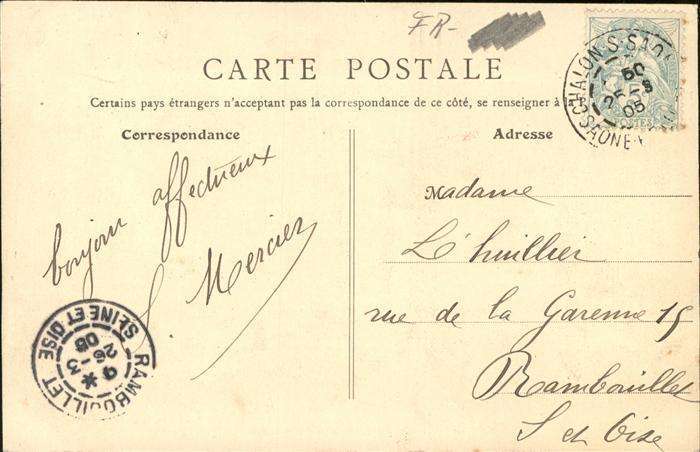 FR-
CARTE POSTALE
Certains pays étrangers n'acceptant pas la correspondance de ce côté, se renseigner à la
Correspondance
Adresse
bonjour affectueux
S Mercier
Madame
L'huillier
rue de la Garenne 15
Rambouillet
S et Oise
CHALON-S-SAO
25-3
05
SAONE
POSTES
RAMBOUILLET
9 *
26-3
05
SEINE ET OISE